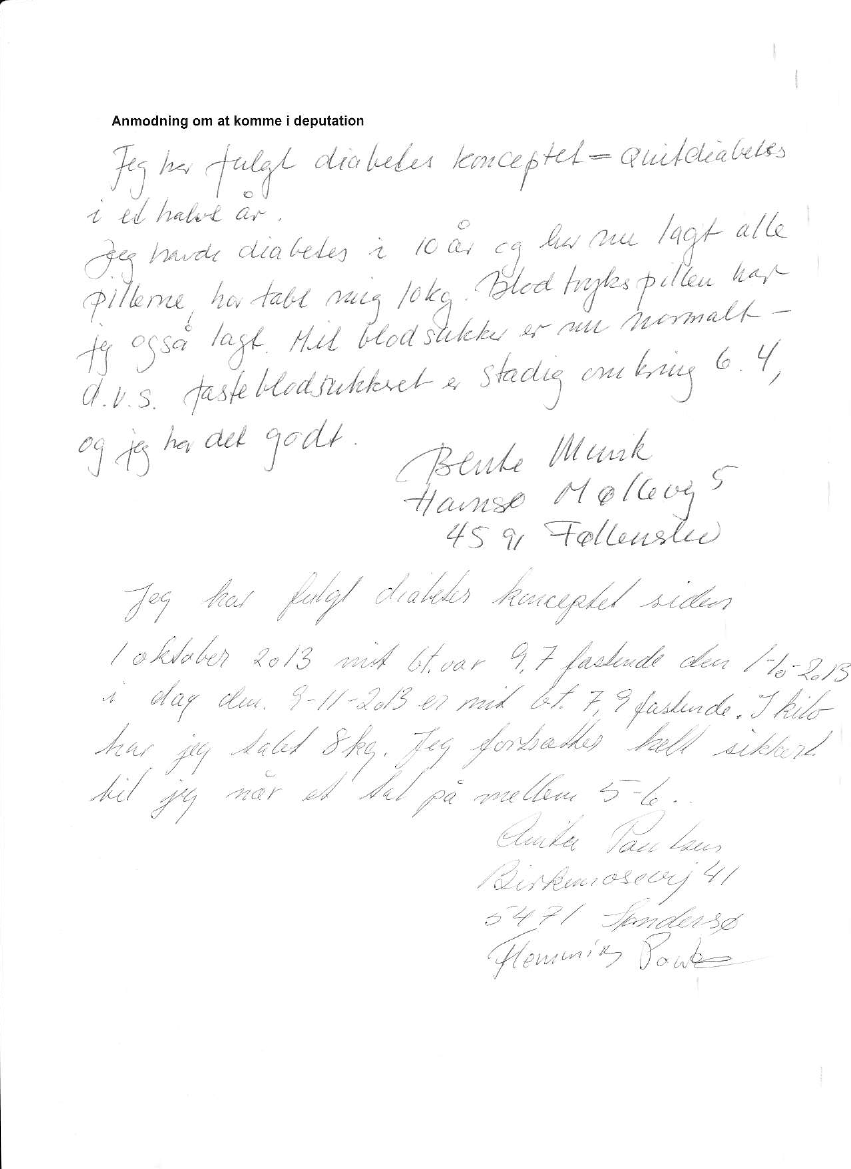 Anmodning om at komme i deputation
Jeg har fulgt diabetes konceptet = Quitdiabetes
i et halvt år.
Jeg havde diabetes i 10 år og har nu lagt alle
pillerne, har tabt mig 10 kg. Blodtrykspillen har
jeg også lagt. Mit blodsukker er nu normalt –
d.v.s. fasteblodsukkeret er stadig omkring 6.4,
og jeg har det godt.
Bente Munk
Havnsø Møllevej 5
4591 Føllenslev
Jeg har fulgt diabetes konceptet siden
1 oktober 2013 mit bt. var 9,7 fastende den 1-10-2013
i dag den. 9-11-2013 er mit bt. 7,9 fastende. I kilo
har jeg tabt 8 kg. Jeg fortsætter helt sikkert
til jeg når et tal på mellem 5-6..
Birkemosevej 41
5471 Søndersø
Flemming